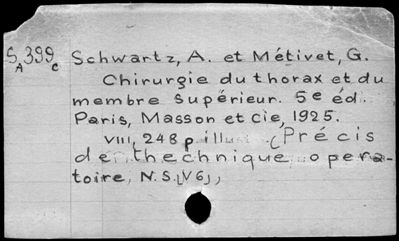 S.399 Schwartz, A. et Métivet, G.
A C
Chirurgie du thorax et du
membre supérieur. 5e éd.
Paris, Masson et Cie, 1925.
VIII, 248 p. illus. (Précis
de thechnique opera-
toire, N.S. [V6],)